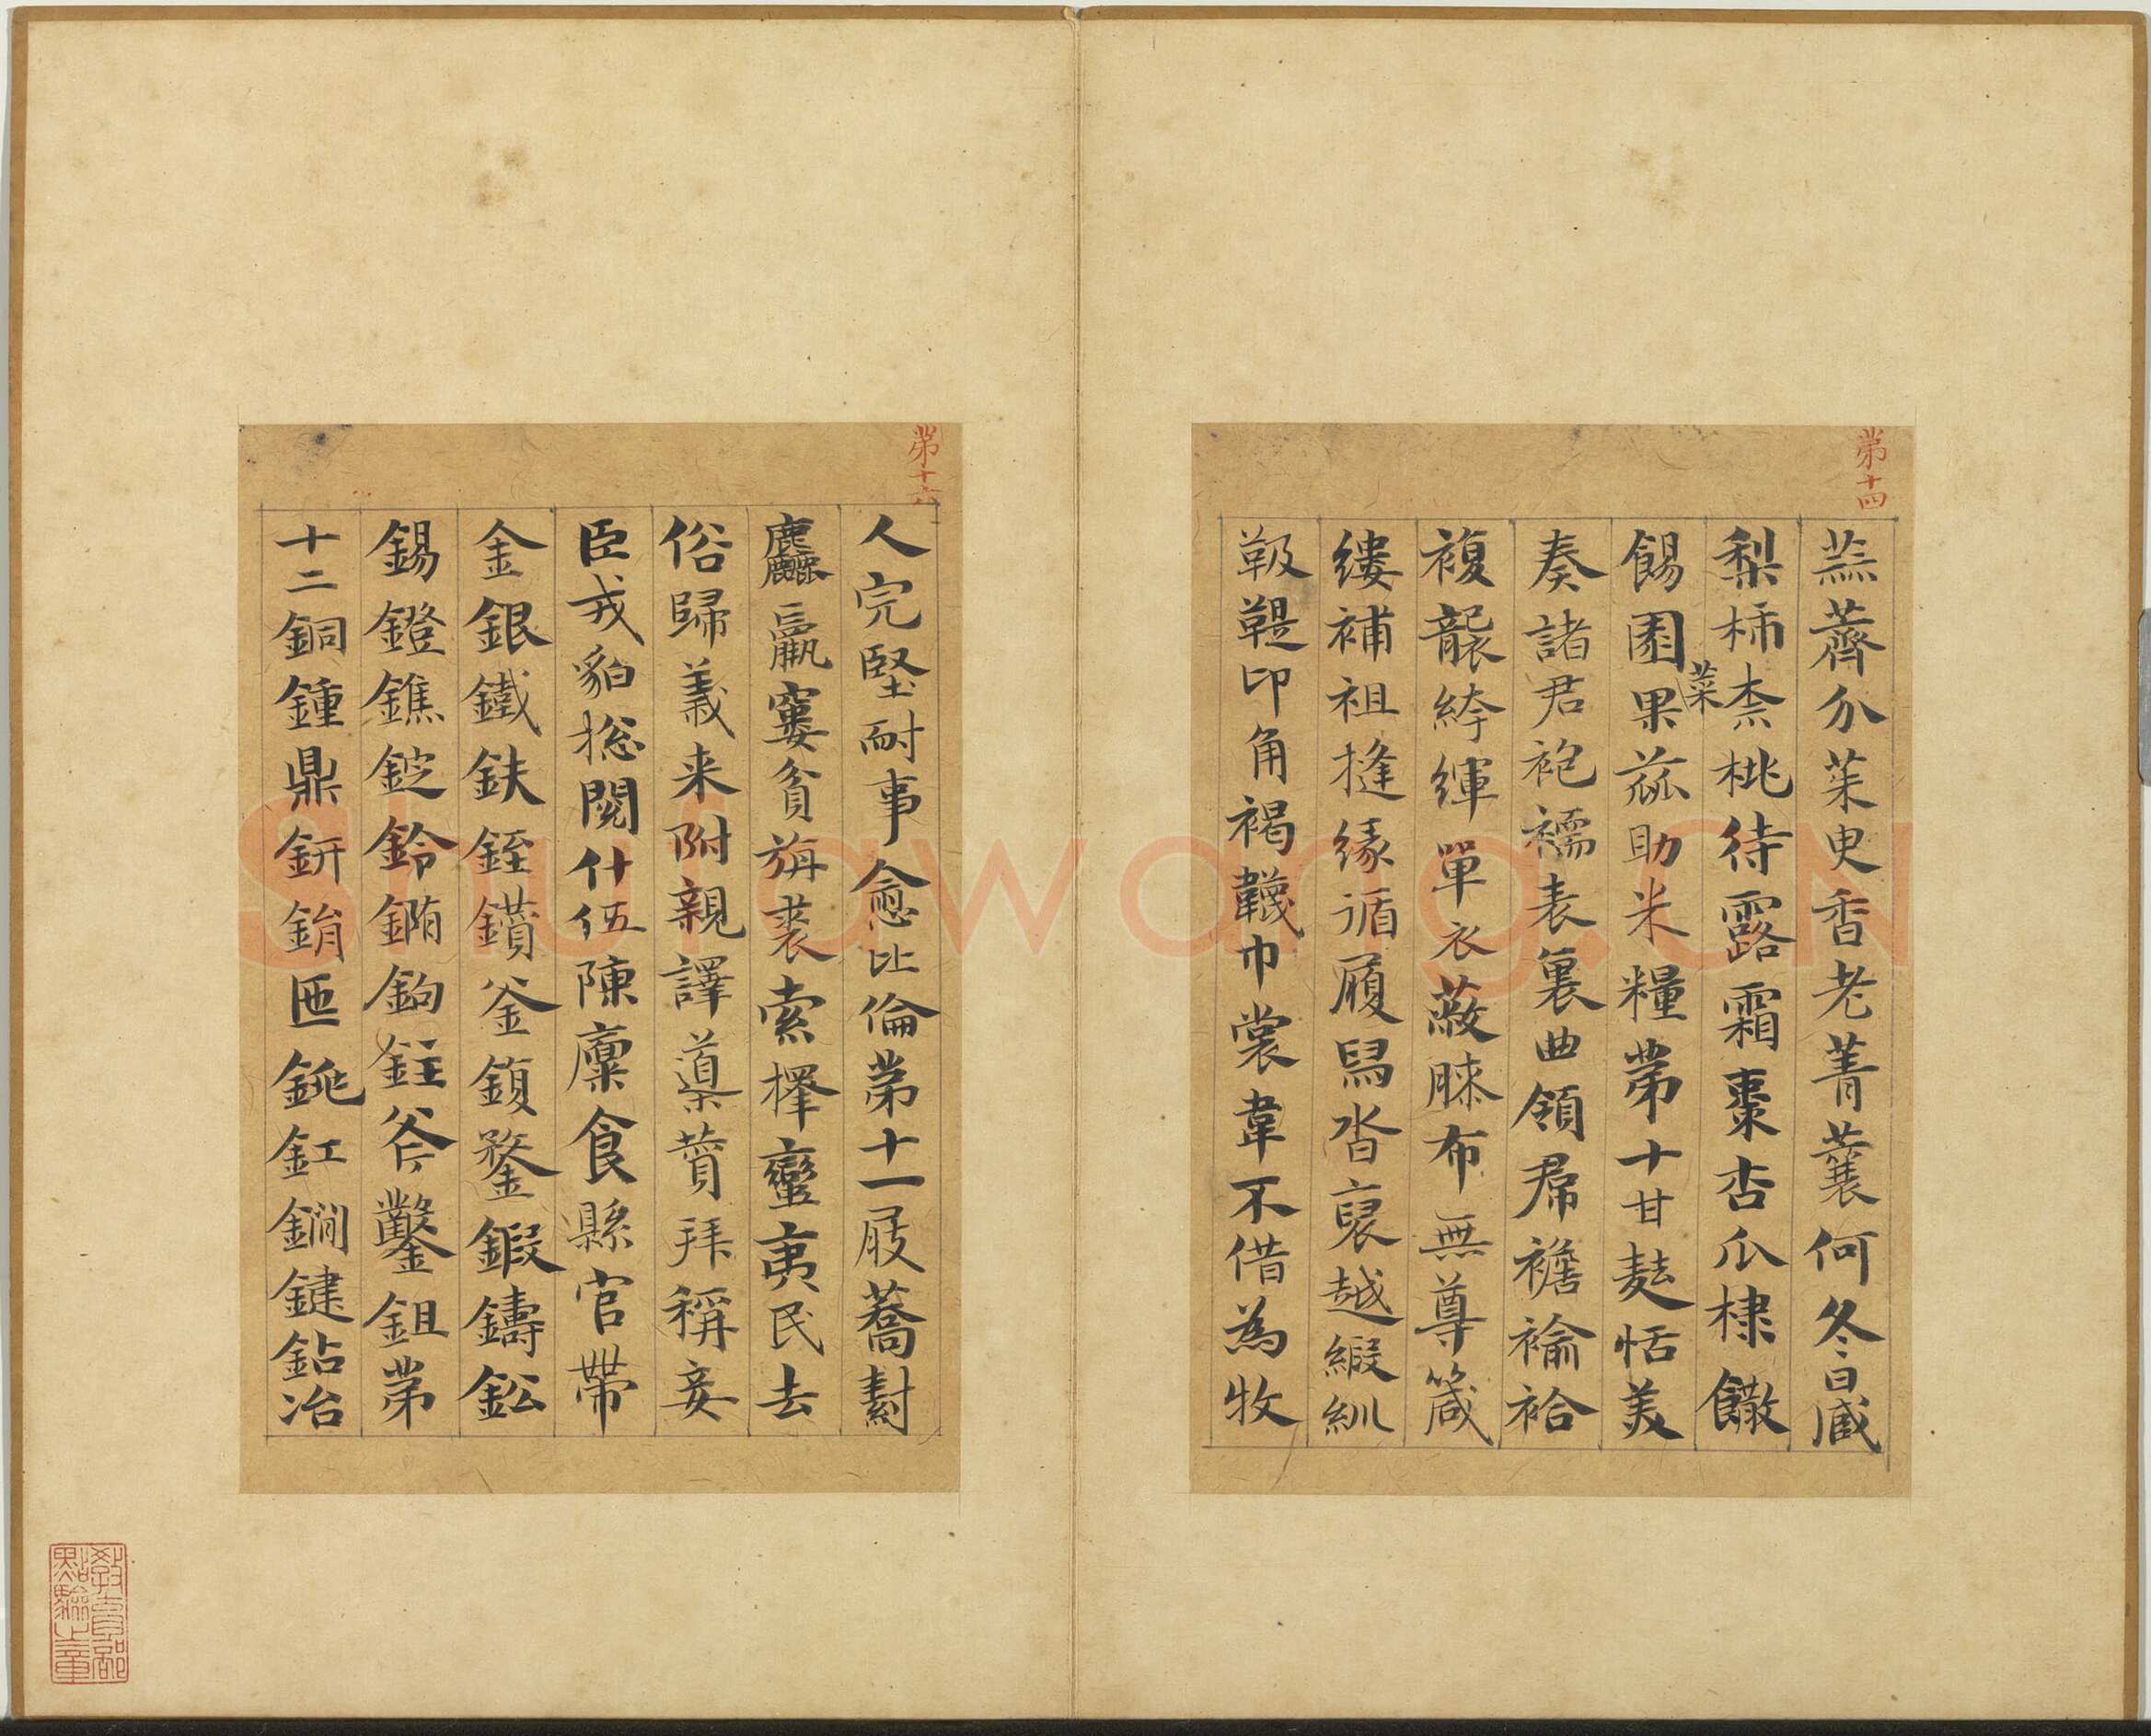 第十四
蕪薺介茱臾香老菁蘘何冬日蔵
梨柿柰桃待露霜棗杏瓜棣饊
餳園菜果蓏助米糧第十甘麩恬美
奏諸君袍襦表裏曲領帬襜褕袷
複襲絝緷單衣蔽膝布無尊箴
縷補袒摓緣循履舄沓裒越緞紃
靸鞮卬角褐韤巾裳韋不借為牧
第十六
人完堅耐事愈比倫第十一屐蕎
麤羸窶貧旃裘索擇蠻夷民去
俗歸義来附親譯導賛拜稱妾
臣戎貊揔閱什伍陳廩食縣官帶
金銀鐵鈇銍鐀釜鍑鍪鍛鑄鈆
錫鐙鐎錠鈴鈎銍斧鑿鉏第
十二銅鍾鼎鈃鋗匜銚釭鐧鍵鉆冶
教育部
點驗之章
Shufawang.CN